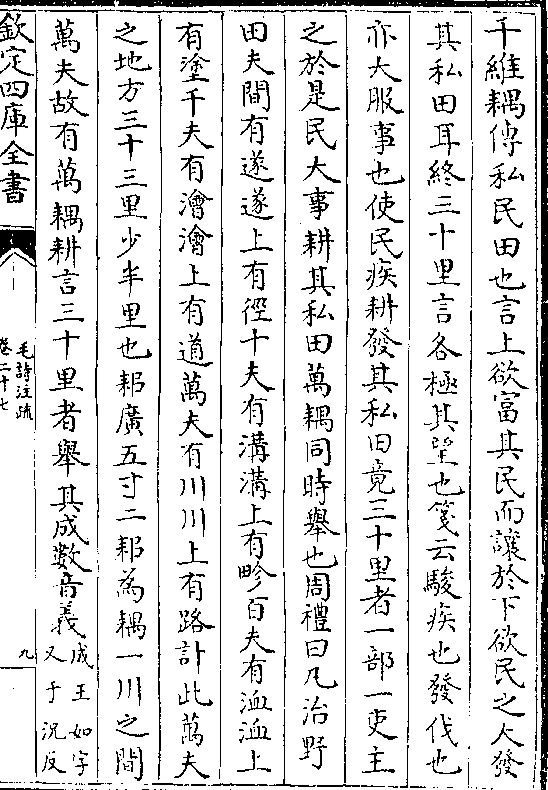 千維耦傳私民田也言上欲富其民而讓於下欲民之大發
其私田耳終三十里言各極其望也箋云駿疾也發伐也
亦大服事也使民疾耕發其私田竟三十里者一部一吏主
之於是民大事耕其私田萬耦同時舉也周禮曰凡治野
田夫間有遂遂上有徑十夫有溝溝上有畛百夫有洫洫上
有塗千夫有澮澮上有道萬夫有川川上有路計此萬夫
之地方三十三里少半里也耜廣五寸二耜為耦一川之間
萬夫故有萬耦耕言三十里者舉其成數音義成王如字
又于況反
欽定四庫全書
毛詩注疏
卷二十七
九